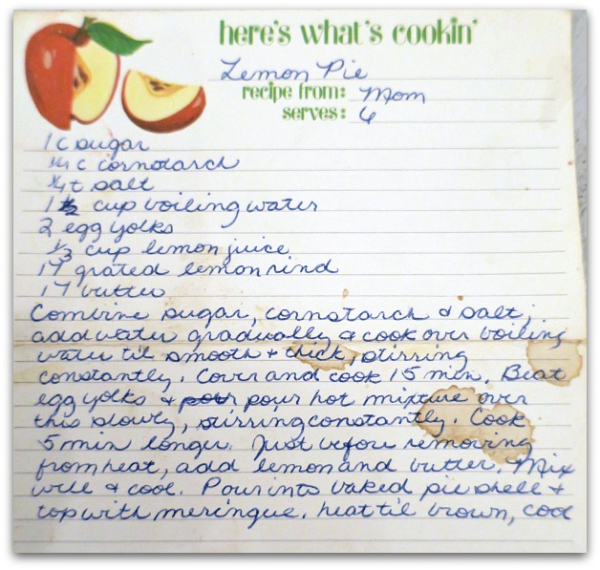 here's what's cookin'
Lemon Pie
recipe from: Mom
serves: 6
1 c sugar
1/4 c cornstarch
1/4 t salt
1 1/2 cup boiling water
2 egg yolks
1/3 cup lemon juice
1 T grated lemon rind
1 T butter
Combine sugar, cornstarch & salt;
add water gradually & cook over boiling
water til smooth + thick, stirring
constantly. Cover and cook 15 min. Beat
egg yolks & pour pour hot mixture over
this slowly, stirring constantly. Cook
5 min longer. Just before removing
from heat, add lemon and butter. Mix
well & cool. Pour into baked pie shell +
top with meringue. heat til brown, cool